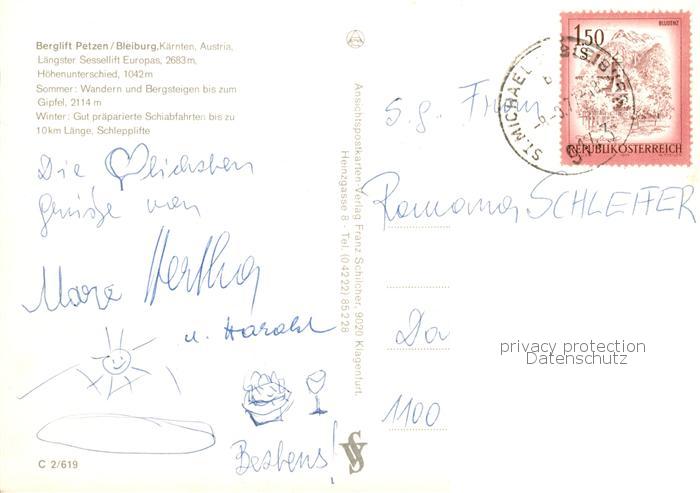 Berglift Petzen/Bleiburg, Kärnten, Austria,
Längster Sessellift Europas, 2683m,
Höhenunterschied, 1042m
Sommer: Wandern und Bergsteigen bis zum
Gipfel, 2114 m
Winter: Gut präparierte Schiabfahrten bis zu
10km Länge, Schlepplifte
Die ♡lichsten
Grüße von
Hertha
u. Harald
Bestens!
C 2/619
Ansichtspostkarten-Verlag Franz Schilcher, 9020 Klagenfurt,
Heinzgasse 8 - Tel. (04222) 85228
BLUDENZ
1.50
REPUBLIK ÖSTERREICH
ST. MICHAEL
S.g. Frau
Romana SCHLEFFER
1100
privacy protection
Datenschutz